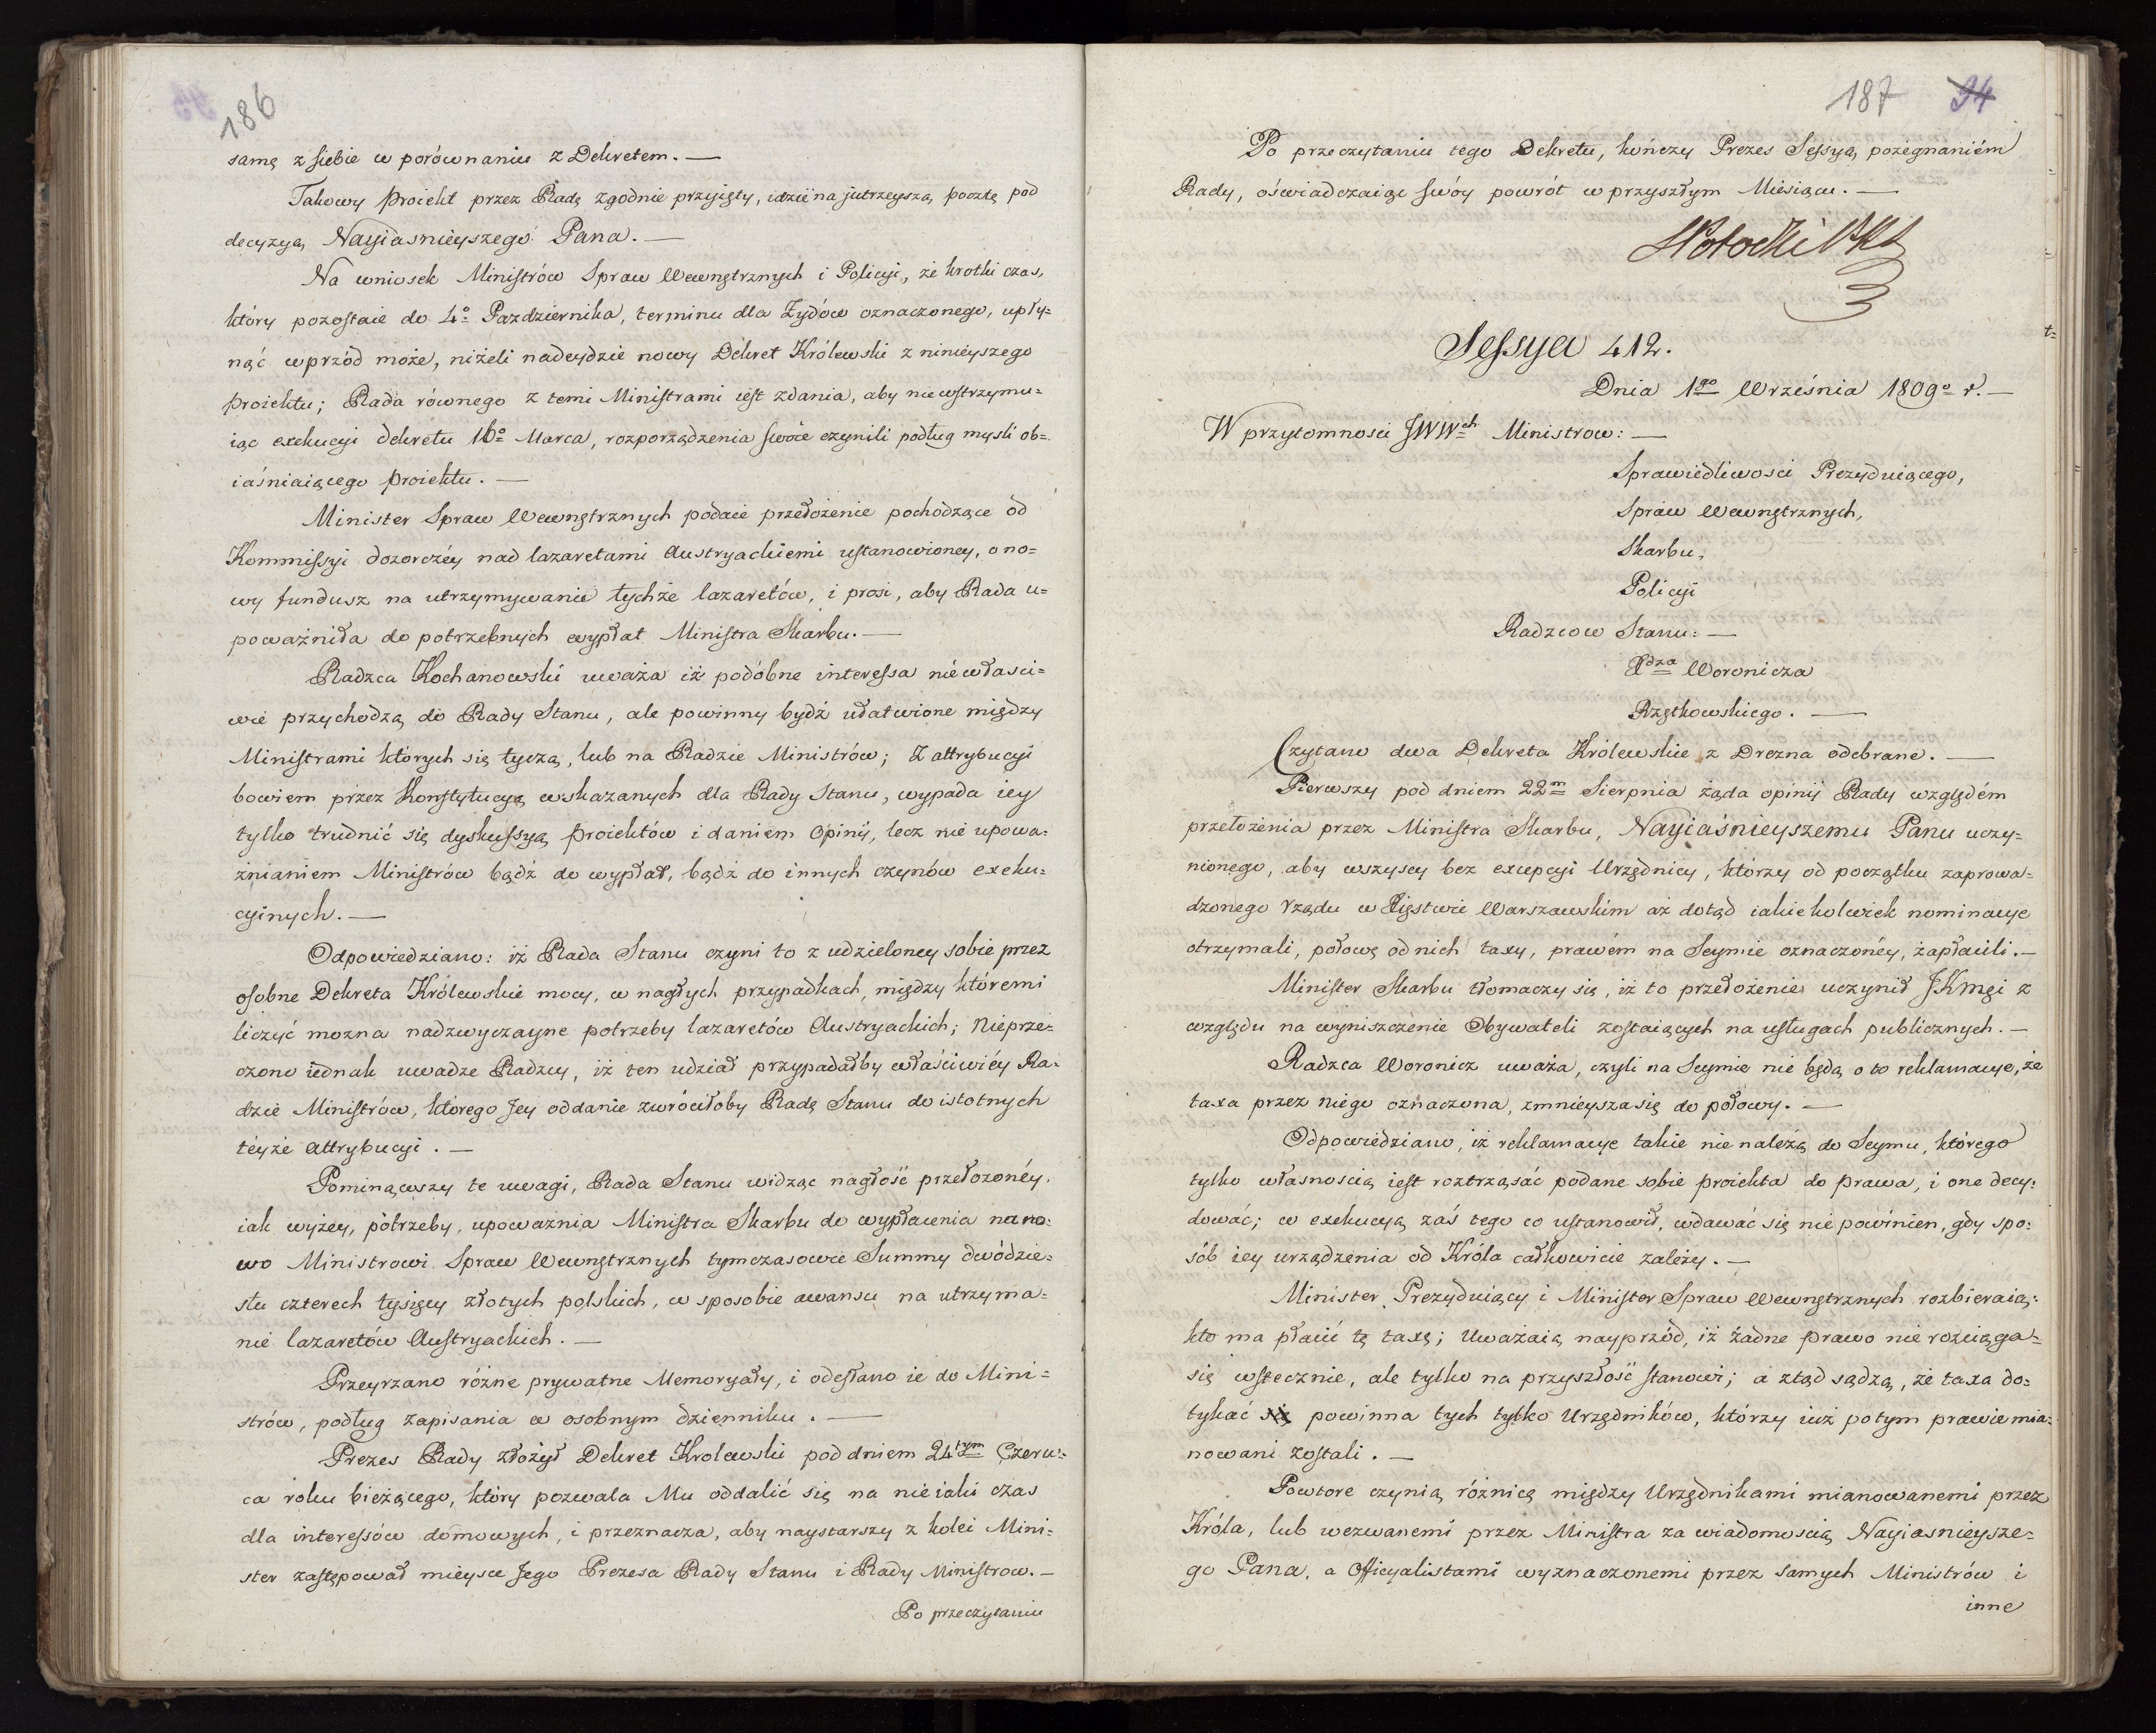 186
samę z siebie w porównaniu z Dekretem. —
Takowy proiekt przez Radę zgodnie przyięty, idzie na jutrzeyszą pocztę pod
decyzyą Nayiasnieyszego Pana. —
Na wniosek Ministrów Spraw Wewnętrznych i Policyi, że krotki czas,
który pozostaie do 4º Pazdziernika, terminu dla Żydów oznaczonego, upły=
nąć wprzód może, niżeli nadeydzie nowy Dekret Królewski z ninieyszego
proiektu; Rada równego z temi Ministrami iest zdania, aby nie wstrzymu=
iąc exekucyi dekretu 16º Marca, rozporządzenia swoie czynili podług mysli ob=
iaśniaiącego proiektu. —
Minister Spraw Wewnętrznych podaie przełożenie pochodzące od
Kommissyi dozorczéy nad lazaretami Austryackiemi ustanowioney, o no=
wy fundusz na utrzymywanie tychże lazaretów, i prosi, aby Rada u=
poważniła do potrzebnych wypłat Ministra Skarbu. —
Radzca Kochanowski uważa iż podobne interessa niewłasci=
wie przychodzą do Rady Stanu, ale powinny bydź ułatwione między
Ministrami których się tyczą, lub na Radzie Ministrów; Z attrybucyi
bowiem przez Konstytucyą wskazanych dla Rady Stanu, wypada iey
tylko trudnić się dyskussyą proiektów i daniem Opinii, lecz nie upowa=
żnianiem Ministrów bądź do wypłat, bądź do innych czynów exeku=
cyinych. —
Odpowiedziano: iż Rada Stanu czyni to z udzieloney sobie przez
osobne Dekreta Królewskie mocy, w nagłych przypadkach, między któremi
liczyć mozna nadzwyczayne potrzeby lazaretów Austryackich; Nieprze=
czono iednak uwadze Radzcy, iż ten udział przypadałby właściwiéy Ra=
dzie Ministrów, którego Jey oddanie zwróciłoby Radę Stanu do istotnych
téyże attrybucyi. —
Pominąwszy te uwagi, Rada Stanu widząc nagłość przełozonéy,
iak wyżey, potrzeby, upoważnia Ministra Skarbu do wypłacenia na no=
wo Ministrowi Spraw Wewnętrznych tymczasowie Summy dwódzie=
stu czterech tysięcy złotych polskich, w sposobie awansu na utrzyma=
nie lazaretów Austryackich. —
Przeyrzano różne prywatne Memoryały, i odesłano ie do Mini=
strów, podług zapisania w osobnym dzienniku. —
Prezes Rady złożył Dekret Krolewski pod dniem 24tym Czerw=
ca roku bieżącego, który pozwala Mu oddalić się na nieiaki czas
dla interessów domowych, i przeznacza, aby naystarszy z kolei Mini=
ster zastępował mieysce Jego Prezesa Rady Stanu i Rady Ministrow. —
Po przeczytaniu
187 94
Po przeczytaniu tego Dekretu, kończy Prezes Sessyą pożegnaniém
Rady, oświadczaiąc swóy powrót w przyszłym Miesiącu. —
Sessya 412.
Dnia 1go Września 1809º r. —
W przytomnosci JWWch Ministrow: —
Sprawiedliwosci Prezyduiącego,
Spraw Wewnętrznych,
Skarbu,
Policyi
Radzcow Stanu: —
Xdza Woronicza
Rzętkowskiego. —
Czytano dwa Dekreta Królewskie z Drezna odebrane. —
Pierwszy pod dniem 22m Sierpnia żąda opinii Rady względém
przełożenia przez Ministra Skarbu, Nayiaśnieyszemu Panu uczy=
nionego, aby wszyscy bez excepcyi Urzędnicy, którzy od początku zaprowa=
dzonego rządu w Xięstwie Warszawskim aż dotąd iakiekolwiek nominacye
otrzymali, połowę od nich taxy, prawém na Seymie oznaczonéy, zapłacili. —
Minister Skarbu tłomaczy się, iż to przełożenie uczynił JKmci z
względu na wyniszczenie Obywateli zostaiących na usługach publicznych. —
Radzca Woronicz uważa, czyli na Seymie nie będą o to reklamacye, że
taxa przez niego oznaczona, zmnieysza się do połowy. —
Odpowiedziano, iż reklamacye takie nie należą do Seymu, którego
tylko własnoscią iest roztrząsać podane sobie proiekta do prawa, i one decy=
dować; w exekucyą zaś tego co ustanowił, wdawać się nie powinien, gdy spo=
sób iey urządzenia od Króla całkowicie zależy. —
Minister Prezyduiący i Minister Spraw Wewnętrznych rozbieraią:
kto ma płacić tę taxę; Uważaią nayprzód, iż żadne prawo nie rozciąga=
się wstecznie, ale tylko na przyszłość stanowi; a ztąd sądzą, że taxa do=
tykać się powinna tych tylko Urzędników, którzy iuż po tym prawie mia=
nowani zostali. —
Powtore czynią różnicę między Urzędnikami mianowanemi przez
Króla, lub wezwanemi przez Ministra za wiadomoscią Nayiasnieysze=
go Pana, a Officyalistami wyznaczonemi przez samych Ministrów i
inne